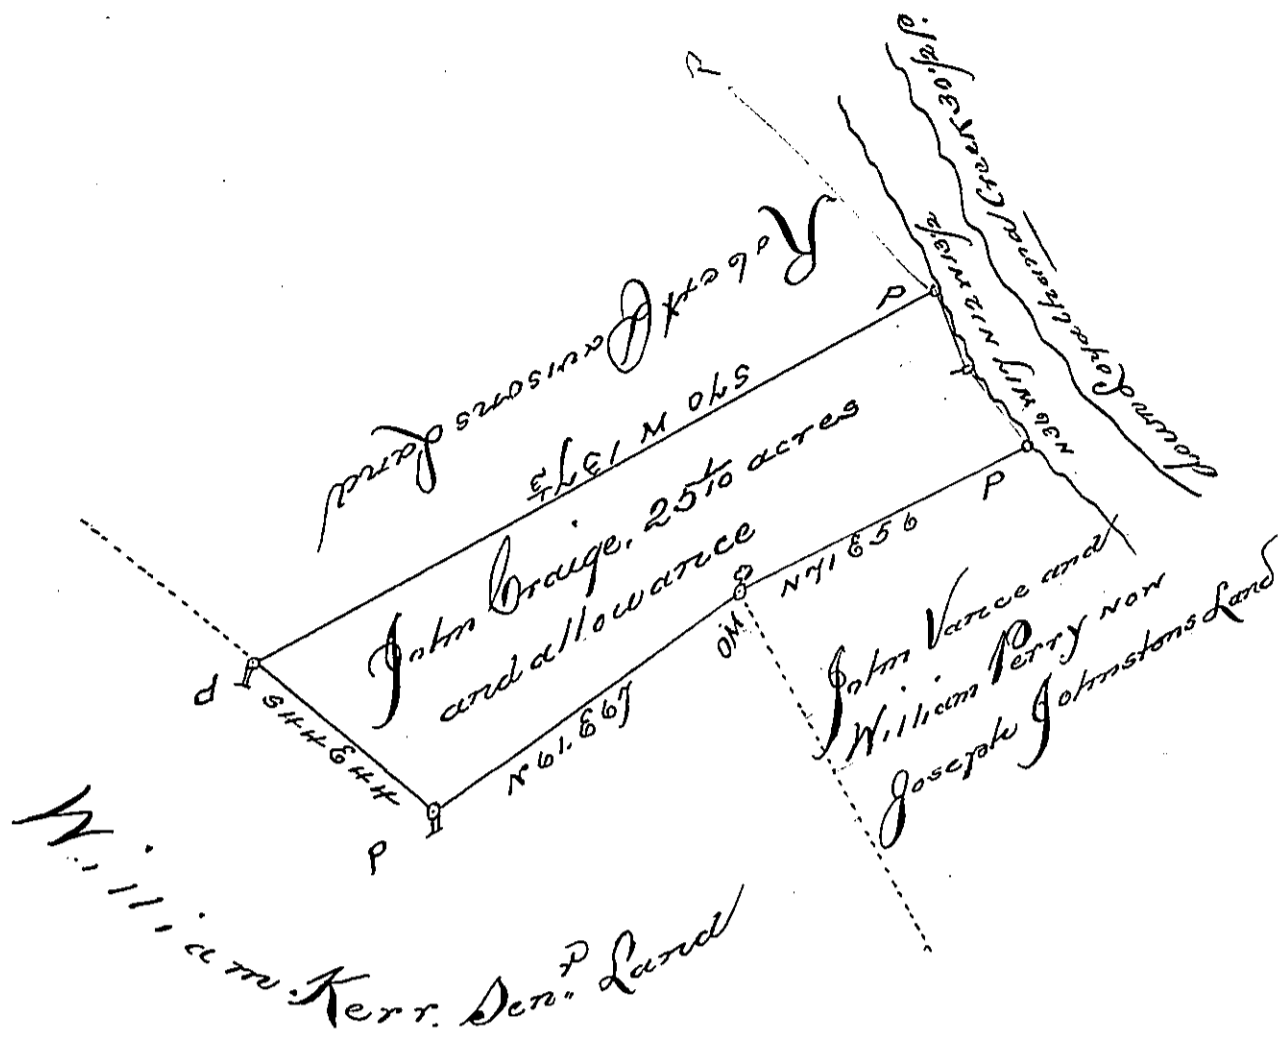 P
down Loyalhanna Creek 30 1/2 P.
N12 W13 1/2
N36 W17
P
P
P
Robert Lawisons
Land
S70 W 137 1/2
John Craige. 25 1/10 acres
and allowance
N71 E56
OM
N61. E67
S44 E44
P
P
John Vance and
William Perry now
Joseph Johnstons Land
William. Kerr. Senr. Land